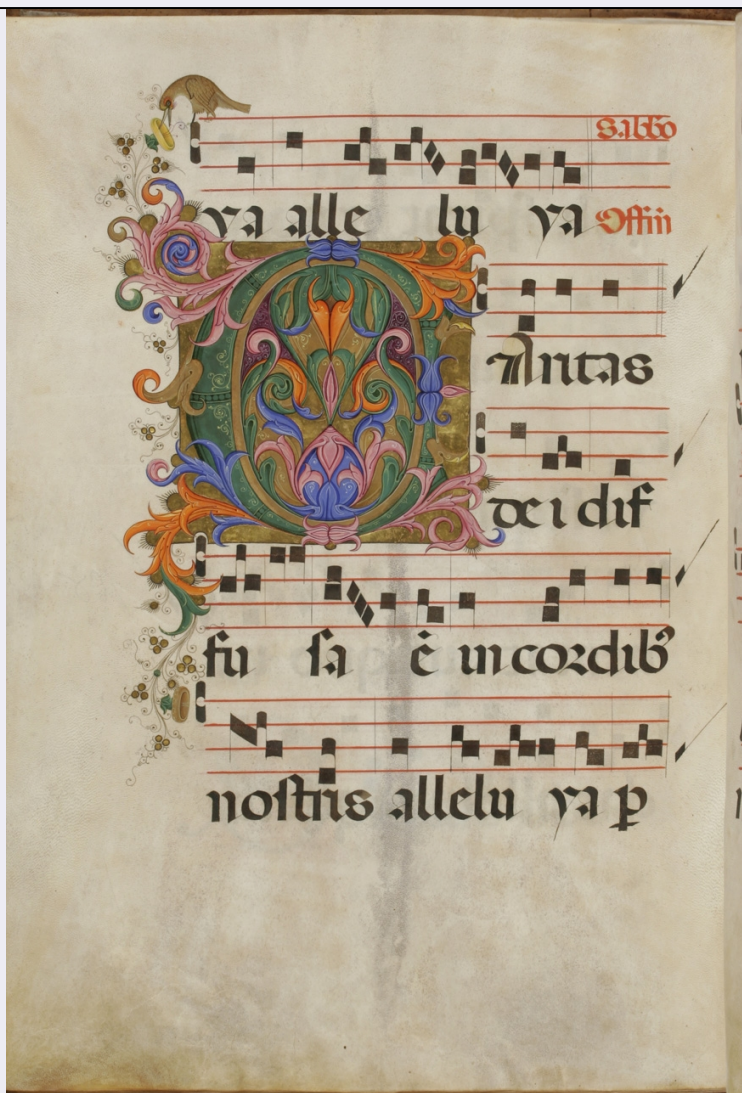 Sabbõ
ya alle lu ya Offiñ
CAritas
de i dif
fu sa ẽ in cordibꝰ
nostris allelu ya ꝑ